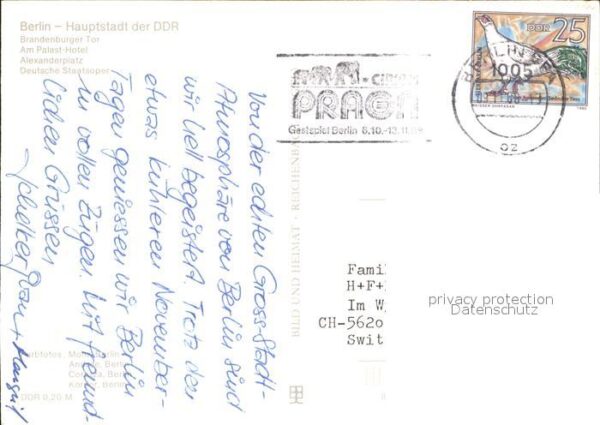 Berlin – Hauptstadt der DDR
Brandenburger Tor
Am Palast-Hotel
Alexanderplatz
Deutsche Staatsoper
Von der echten Gross-Stadt-
Atmosphäre von Berlin sind
wir hell begeistert. Trotz der
etwas kühleren November-
Tagen geniessen wir Berlin
in vollen Zügen. Mit freund-
lichen Grüssen
DDR 0,20 M
BILD UND HEIMAT · REICHENBACH
PRAGA
Gastspiel Berlin 8.10.-13.11.
DDR 25
BERLIN
1085
Famil
H+F+
Im W
CH-562o
Swit
privacy protection
Datenschutz